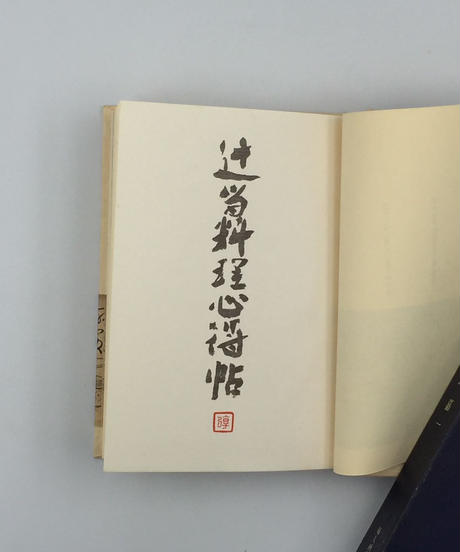 辻留料理心得帖
淳